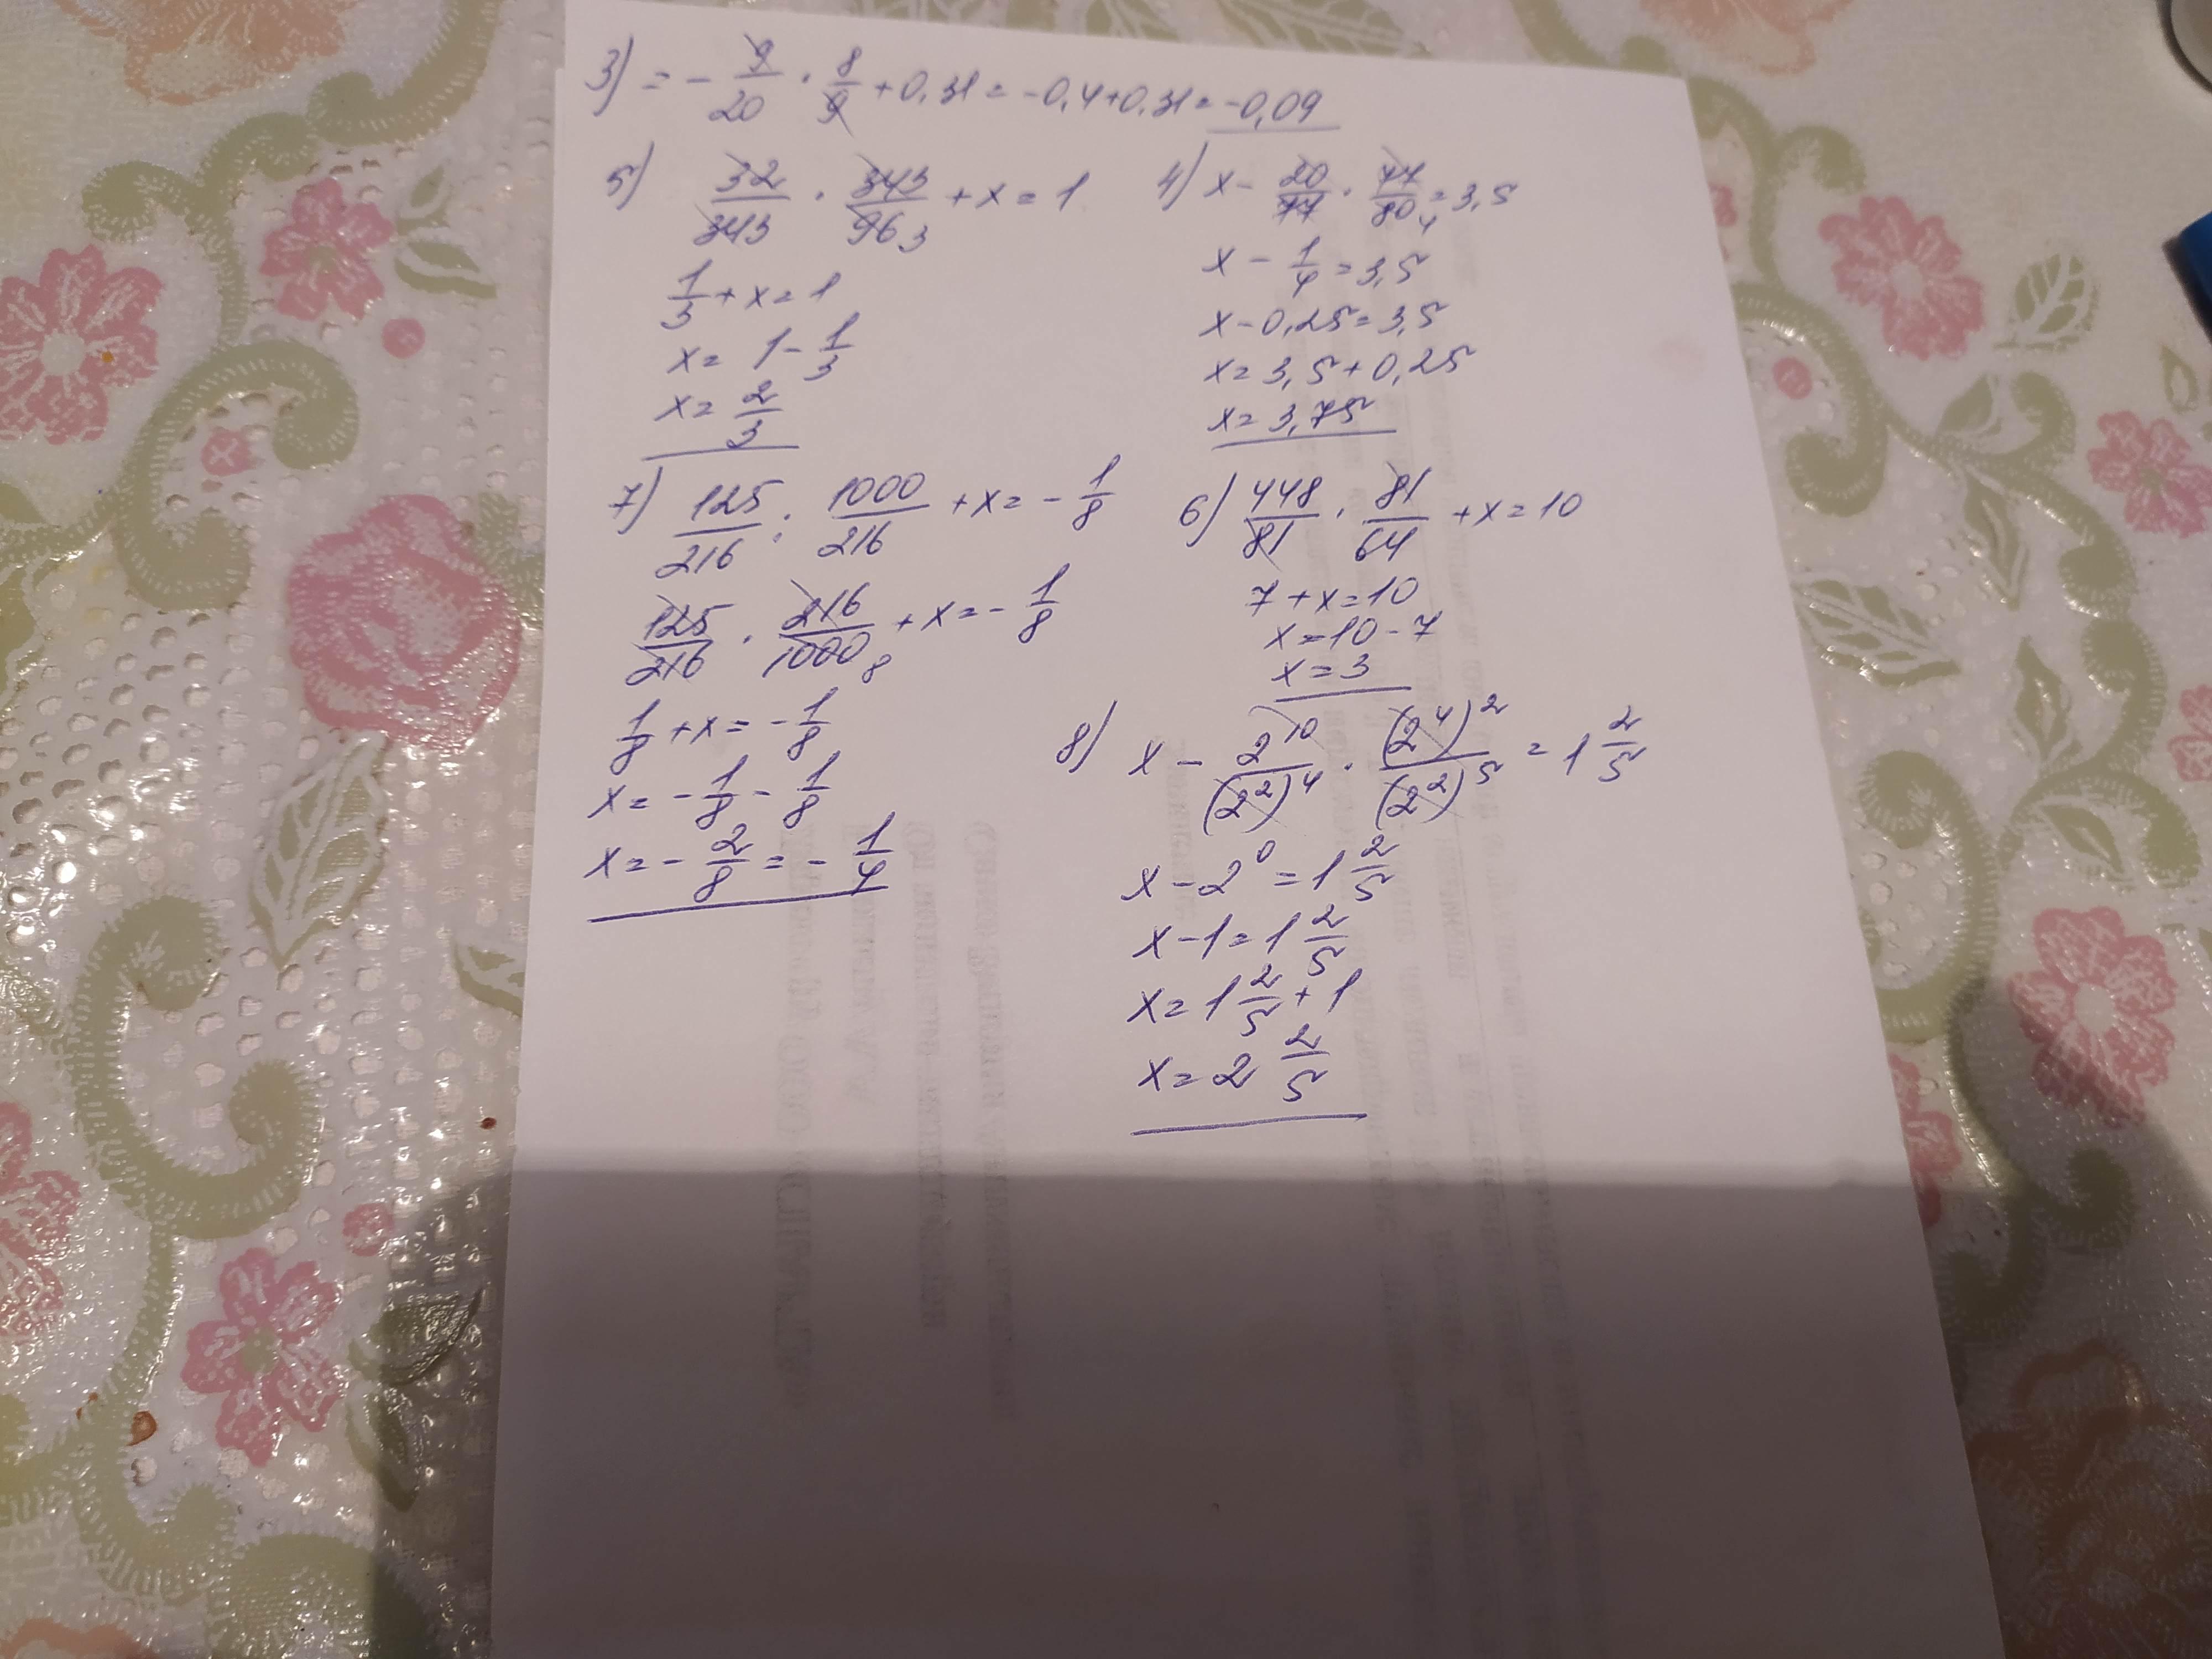 3) = - 9/20 · 8/9 + 0,31 = -0,4+0,31 = -0,09
5) 32/343 · 343/96 3 + x = 1
1/3 + x = 1
x = 1 - 1/3
x = 2/3
4) x - 20/77 · 77/80 4 = 3,5
x - 1/4 = 3,5
x - 0,25 = 3,5
x = 3,5 + 0,25
x = 3,75
7) 125/216 : 1000/216 + x = - 1/8
125/216 · 216/1000 8 + x = - 1/8
1/8 + x = - 1/8
x = - 1/8 - 1/8
x = - 2/8 = - 1/4
6) 448/81 · 81/64 + x = 10
7 + x = 10
x = 10 - 7
x = 3
8) x - 2^10/(2^2)^4 · (2^4)^2/(2^2)^5 = 1 2/5
x - 2^0 = 1 2/5
x - 1 = 1 2/5
x = 1 2/5 + 1
x = 2 2/5